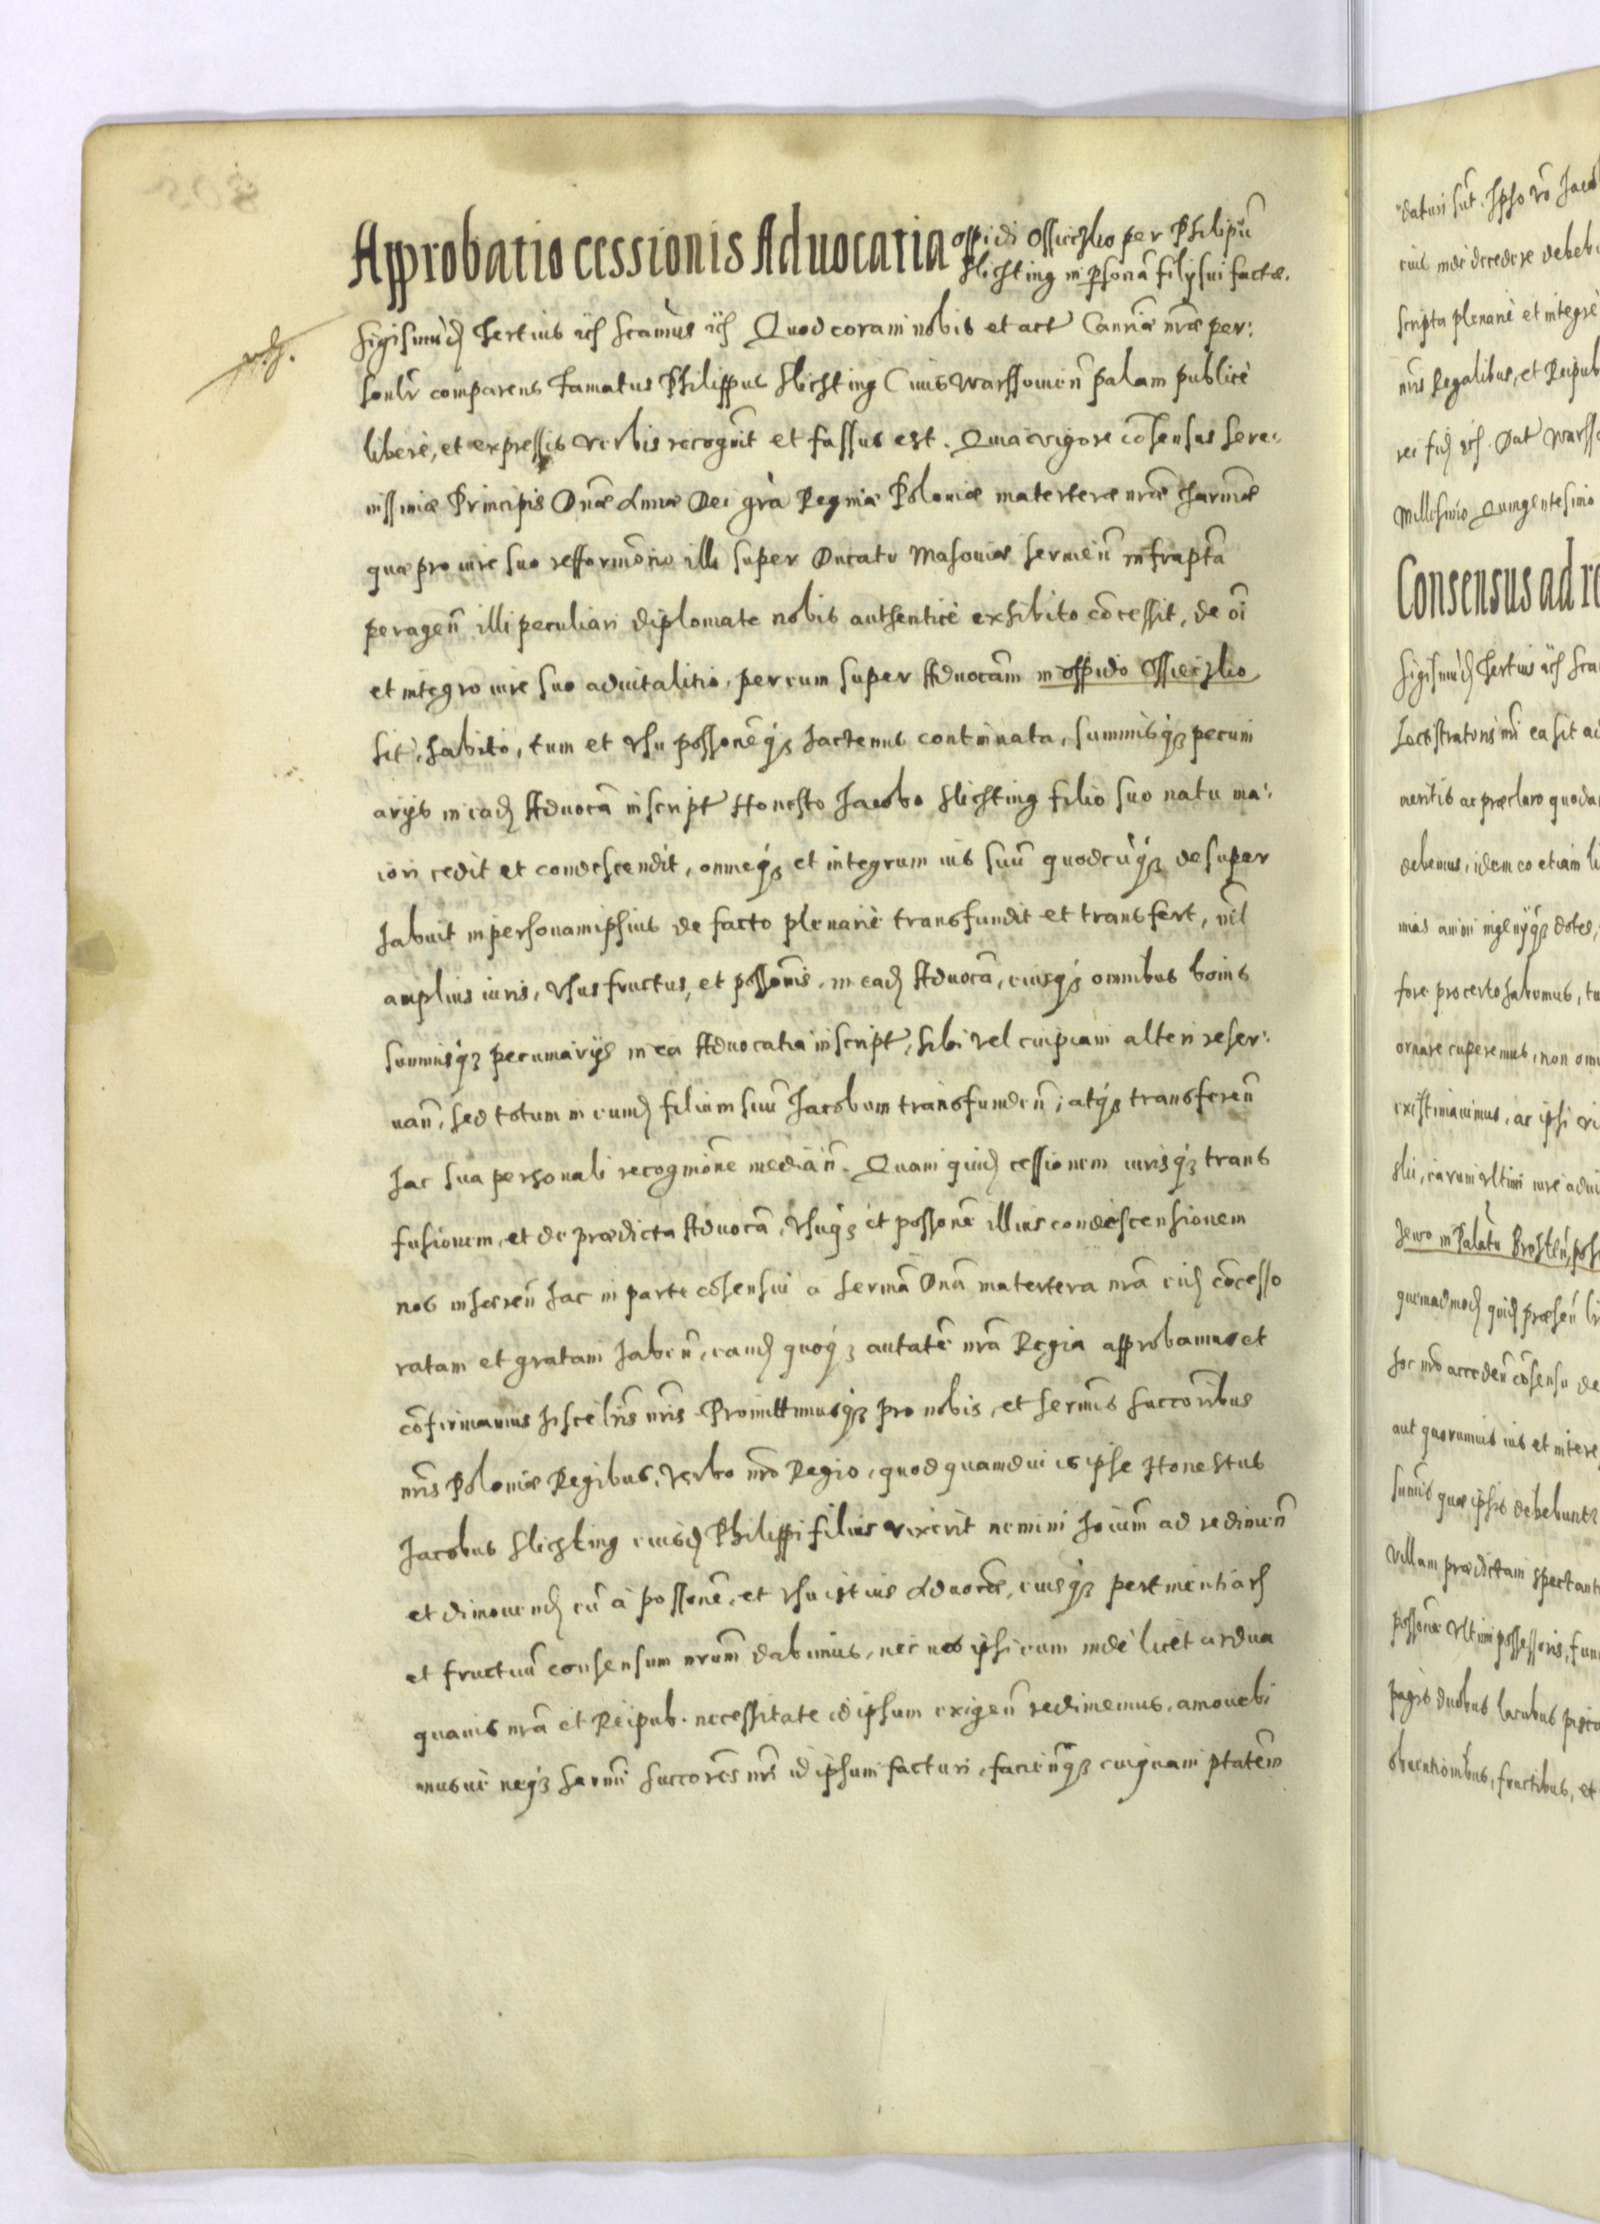 Approbatio cessionis Aduocatia oppidi Ossieczko per Philipū
Slichting in psonā filij sui factæ.
Sigismūd Tertius ετc Scamus ετc Quod coram nobis et act Cancriæ nræ per:
sonlr comparens Famatus Philippus Slichting Ciuis Warssouien̄ palam publicè
liberè, et expressis verbis recognit et fassus est. Quia vigore cōsensus Sere:
nissimæ Principis Dnæ Annæ Dei grā Reginæ Poloniæ materteræ nræ charimæ
quæ pro iure suo refformōrio illi super Ducatu Masouiæ seruien̄ infrapta
peragen̄ illi peculiari diplomate nobis authenticè exhibito cōcessit, de oī
et integro iure suo aduitalitio, per eum super Aduocām in oppido Ossieczko
sit, habito, tum et vsu possoneq3 hactenus continuata, summisq3 pecuni
arijs in ead Aduocā inscript Honesto Jacobo Slichting filio suo natu ma:
iori cedit et condescendit, omneq3 et integrum ius suū quodcūq3 desuper
habuit in personam ipsius de facto plenariè transfundit et transfert, nīl
amplius iuris, vsus fructus, et possonis, in ead Aduocā, eiusq3 omnibus bonis
summisq3 pecuniarijs in ea Aduocatia inscript, sibi vel cuipiam alteri reser:
uan̄, sed totum in eumd filium suū Jacobum transfunden̄, atq3 transferen̄
hac sua personali recognōne median̄. Quam quid cessionem iurisq3 trans
fusionem, et de prædicta Aduocā, vsuq3 et possone illius condescensionem
nos inhæren̄ hac in parte cōsensui a Sermā Dnā matertera nrā eid cōcesso
ratam et gratam haben̄, eand quoq3 autatē nrā Regia approbamus et
cōfirmamus hisce lris nris. Promittimusq3 pro nobis, et Sermis Succorībus
nris Poloniæ Regibus, verbo nrō Regio, quod quamdiu is ipse Honestus
Jacobus Slichting eiusd Philippi filius vixerit nemini hoīum ad redimen̄
et dimouend eū à possone, et vsu istius Aduocæ, eiusq3 pertinentiar
et fructuū consensum nrum dabimus, nec nos ipsi eum inde licet ardua
quauis nrā et Reipub. necessitate id ipsum exigen̄ redimemus, amouebi
musue neq3 Sermi Succores nri id ipsum facturi, facien̄q3 cuiquam ptatem
daturi sūt. Ipso vō Jacob
eius inde decedere debeb
scripta plenariè et integrè
nris Regalibus, et Reipub
rei fid ετc. Dat Warss
Millesimo Quingentesimo
Consensus ad re
Sigismūd Tertius ετc Sca
meritis ac præclaro quoda
debemus, idem eo etiam li
mias animi ingenijq3 dotes,
fore pro certo habemus, tu
ornare cuperemus, non om
existimauimus, ac ipsi vi
in Palatu Brzesten, pos
quemadmod quid præsen̄ l
hoc nrō acceden̄ cōsensu de
aut quorumuis ius et intere
sumis quæ ipsis debebuntr
Villam prædictam spectant
possonæ vltimi possessoris, fun
pagis duobus lacubus pisca
obuentionibus, fructibus, et